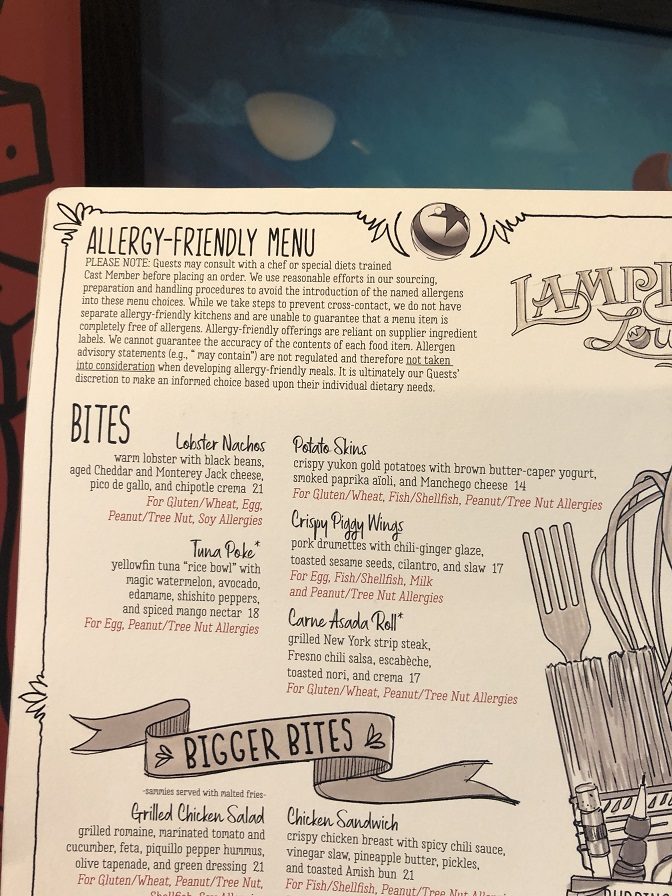 ALLERGY-FRIENDLY MENU
PLEASE NOTE: Guests may consult with a chef or special diets trained
Cast Member before placing an order. We use reasonable efforts in our sourcing,
preparation and handling procedures to avoid the introduction of the named allergens
into these menu choices. While we take steps to prevent cross-contact, we do not have
separate allergy-friendly kitchens and are unable to guarantee that a menu item is
completely free of allergens. Allergy-friendly offerings are reliant on supplier ingredient
labels. We cannot guarantee the accuracy of the contents of each food item. Allergen
advisory statements (e.g., " may contain") are not regulated and therefore not taken
into consideration when developing allergy-friendly meals. It is ultimately our Guests'
discretion to make an informed choice based upon their individual dietary needs.
LAMPL
Lou
BITES
Lobster Nachos
warm lobster with black beans,
aged Cheddar and Monterey Jack cheese,
pico de gallo, and chipotle crema 21
For Gluten/Wheat, Egg,
Peanut/Tree Nut, Soy Allergies
Tuna Poke*
yellowfin tuna "rice bowl" with
magic watermelon, avocado,
edamame, shishito peppers,
and spiced mango nectar 18
For Egg, Peanut/Tree Nut Allergies
Potato Skins
crispy yukon gold potatoes with brown butter-caper yogurt,
smoked paprika aïoli, and Manchego cheese 14
For Gluten/Wheat, Fish/Shellfish, Peanut/Tree Nut Allergies
Crispy Piggy Wings
pork drumettes with chili-ginger glaze,
toasted sesame seeds, cilantro, and slaw 17
For Egg, Fish/Shellfish, Milk
and Peanut/Tree Nut Allergies
Carne Asada Roll*
grilled New York strip steak,
Fresno chili salsa, escabèche,
toasted nori, and crema 17
For Gluten/Wheat, Peanut/Tree Nut Allergies
BIGGER BITES
-sammies served with malted fries-
Grilled Chicken Salad
grilled romaine, marinated tomato and
cucumber, feta, piquillo pepper hummus,
olive tapenade, and green dressing 21
For Gluten/Wheat, Peanut/Tree Nut,
Chicken Sandwich
crispy chicken breast with spicy chili sauce,
vinegar slaw, pineapple butter, pickles,
and toasted Amish bun 21
For Fish/Shellfish, Peanut/Tree Nut Allergies